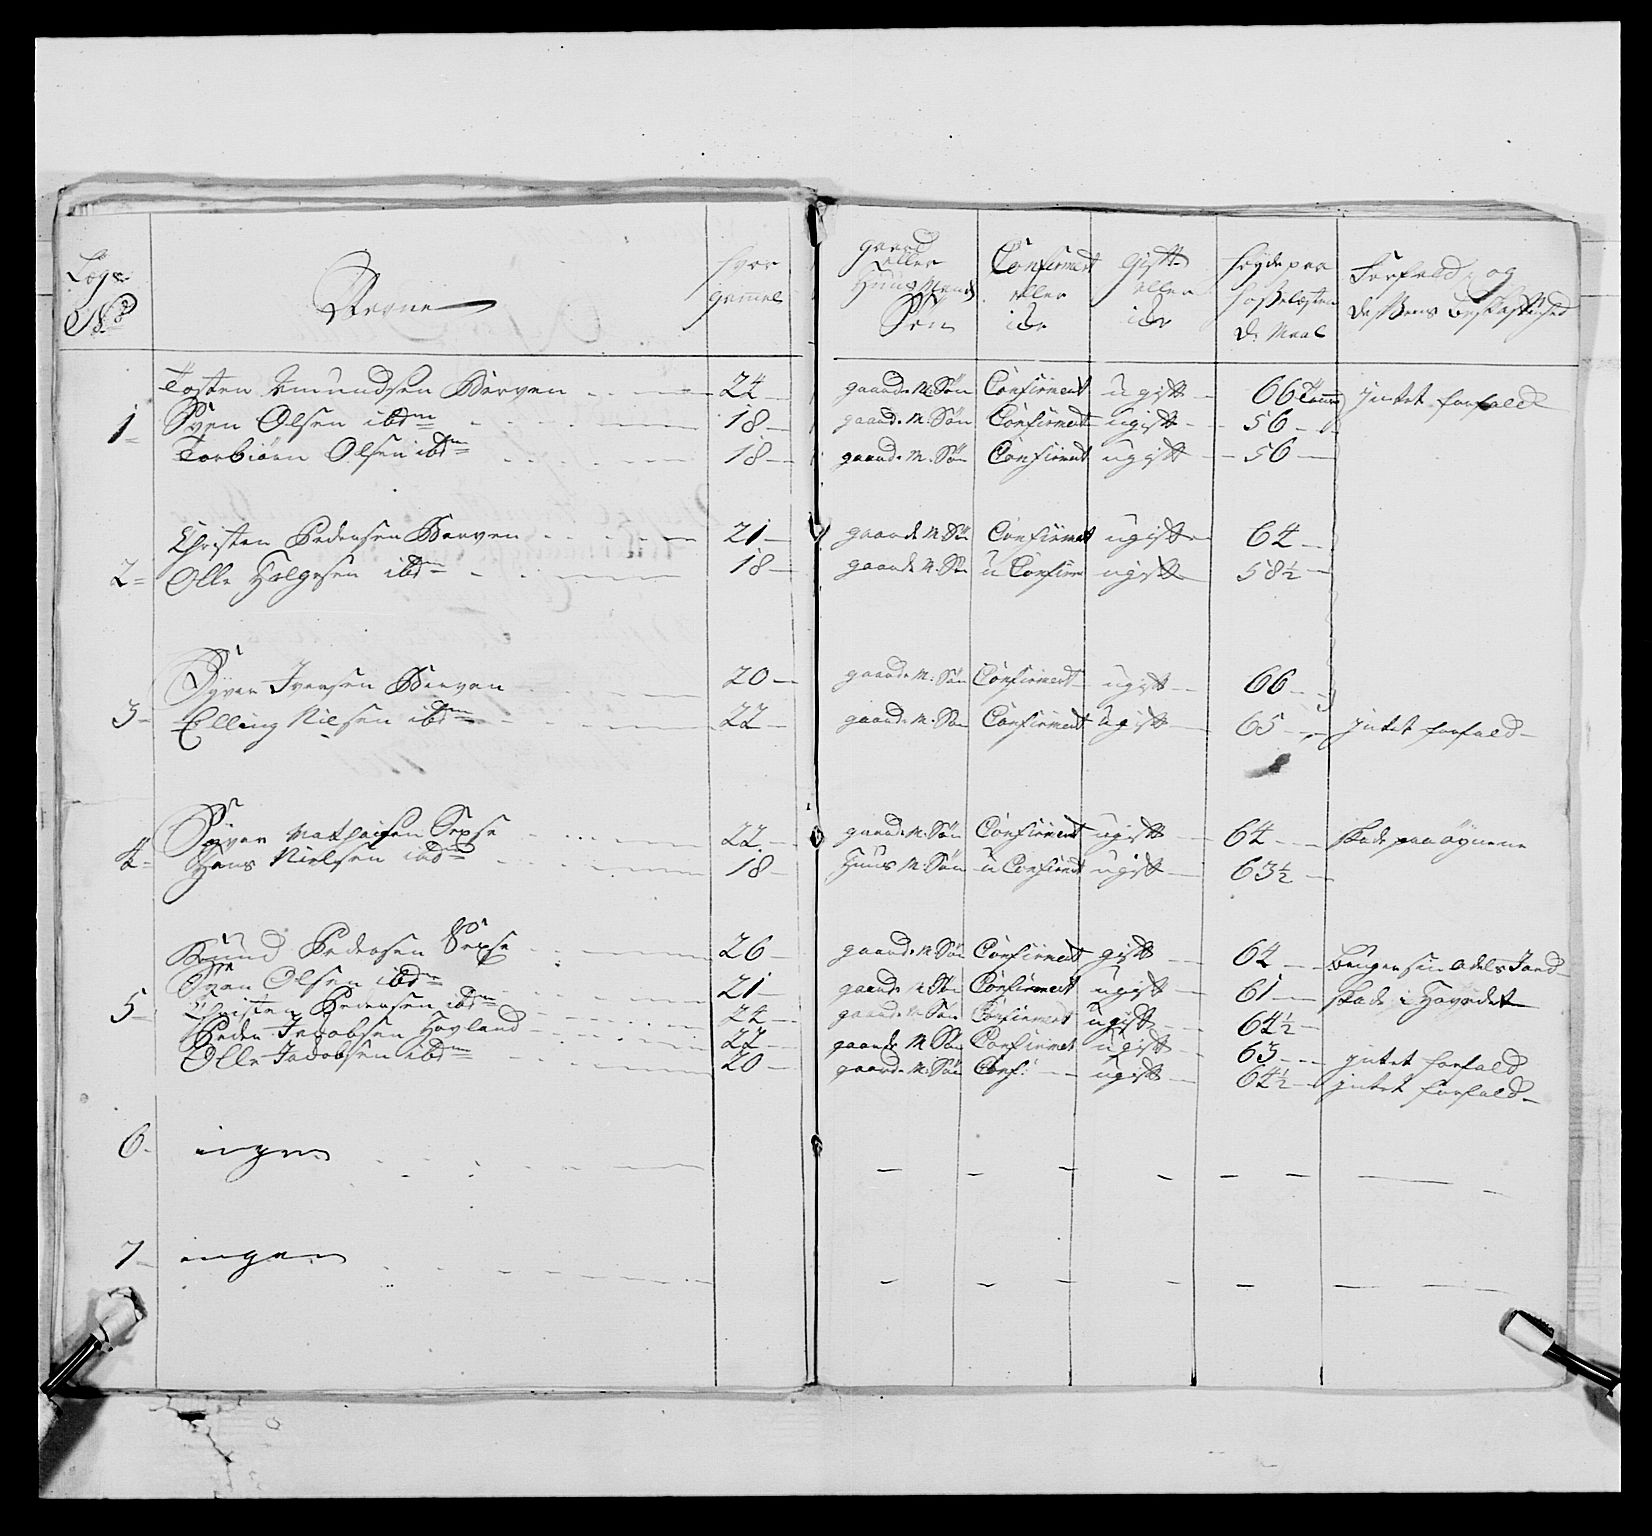 Legs No Navne hvor gammel gaard eller Huus Mands Søn Confirmert eller icke Gift eller icke høyde paa Hosselæsten d. Maal Forfald og dessens beskaffenhed
Tosten Amundsen Berven 24 gaard. M. Søn Confirmert ugift 66 Tomr intet forfald
1 Sven Olsen ibdm 18 gaard. M. Søn Confirmert ugift 56
Torbiørn Olsen ibdm 18 gaard. M. Søn Confirmert ugift 56
Christen Pedersen Berven 21 gaard M Søn Confirmert ugift 64
2 Olle Helgesen ibdm 18 gaard M. Søn u Confirm ugift 58½
Syver Iversen Berven 20 gaard. M. Søn Confirmert ugift 66
3 Elling Nilsen ibdm 22 gaard. M. Søn Confirmert ugift 65 intet forfald
Syver Mathiesen Sexse 22 gaard. M. Søn Confirmert ugift 64 skade paa øynene
4 Hans Nielsen ibdm 18 Huus M. Søn u Confirmert ugift 63½
Knud Pedersen Sexse 26 gaard. M Søn Confirmert gift 64
Sven Olsen ibdm 21 gaard. M Søn Confirmert ugift 61 skade i Hovedet
5 Christen Pedersen ibdm 24 gaard. M. Søn Confirmert ugift 64½
Peder Jacobsen Hovland 22 gaard. M Søn Confirmert ugift 65 intet forfald
Olle Jacobsen ibdm 20 gaard. M. Søn Conf: ugift 64½ intet forfald
6 ingen
7 ingen